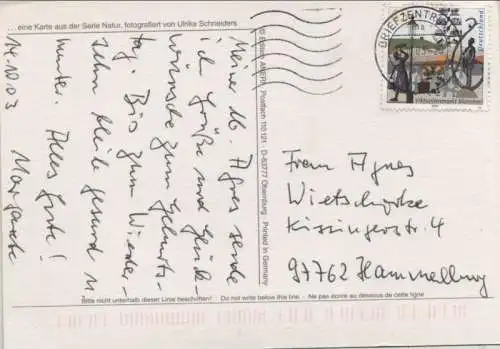 ... eine Karte aus der Serie Natur, fotografiert von Ulrike Schneiders
14.10.03
Meine lb. Agnes sende
ich Grüße und Glück-
wünsche zum Geburts-
tag. Bis zum Wieder-
sehn bleibe gesund u.
munter. Alles Gute!
Margarete
Postfach 110 121 · D-63777 Obernburg · Printed in Germany
BRIEFZENTRUM
Deutschland
Viktualienmarkt München
Frau Agnes
Kissingerstr. 4
97762 Hammelburg
Bitte nicht unterhalb dieser Linie beschriften! Do not write below this line. Ne pas écrire au dessous de cette ligne